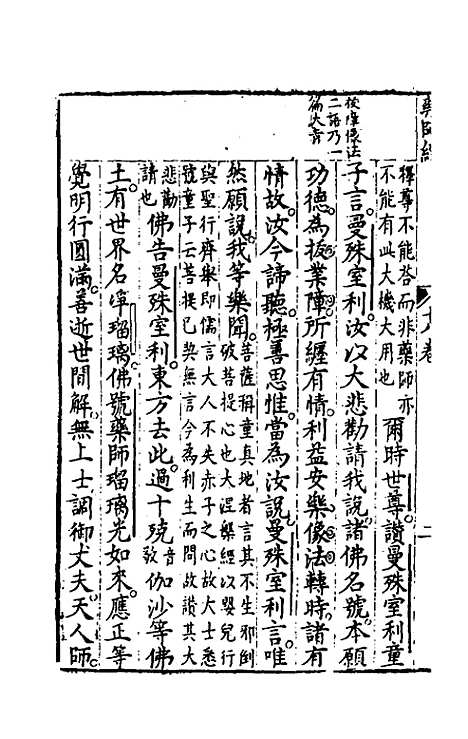 按障像法
二語乃一
篇大旨
藥師經
十八卷
二
釋尊不能咨而非藥師亦
不能有此大機大用也
爾時世尊讚曼殊室利童
子言曼殊室利汝以大悲勸請我說諸佛名號本願
功德為拔業障所纏有情利益安樂像法轉時諸有
情故汝今諦聽極善思惟當為汝說曼殊室利言唯
然願說我等樂聞
菩薩稱童真地者言其不生邪倒
破菩提心也大涅槃經以嬰兒行
與聖行齊舉即儒言大人不失赤子之心故大士悉
號童子云菩提已契無言今為利生而問故讚其大
悲勸
請也
佛告曼殊室利東方去此過十殑
音
伽沙等佛
土有世界名淨瑠璃佛號藥師瑠璃光如來應正等
覺明行圓滿善逝世間解無上士調御丈夫天人師